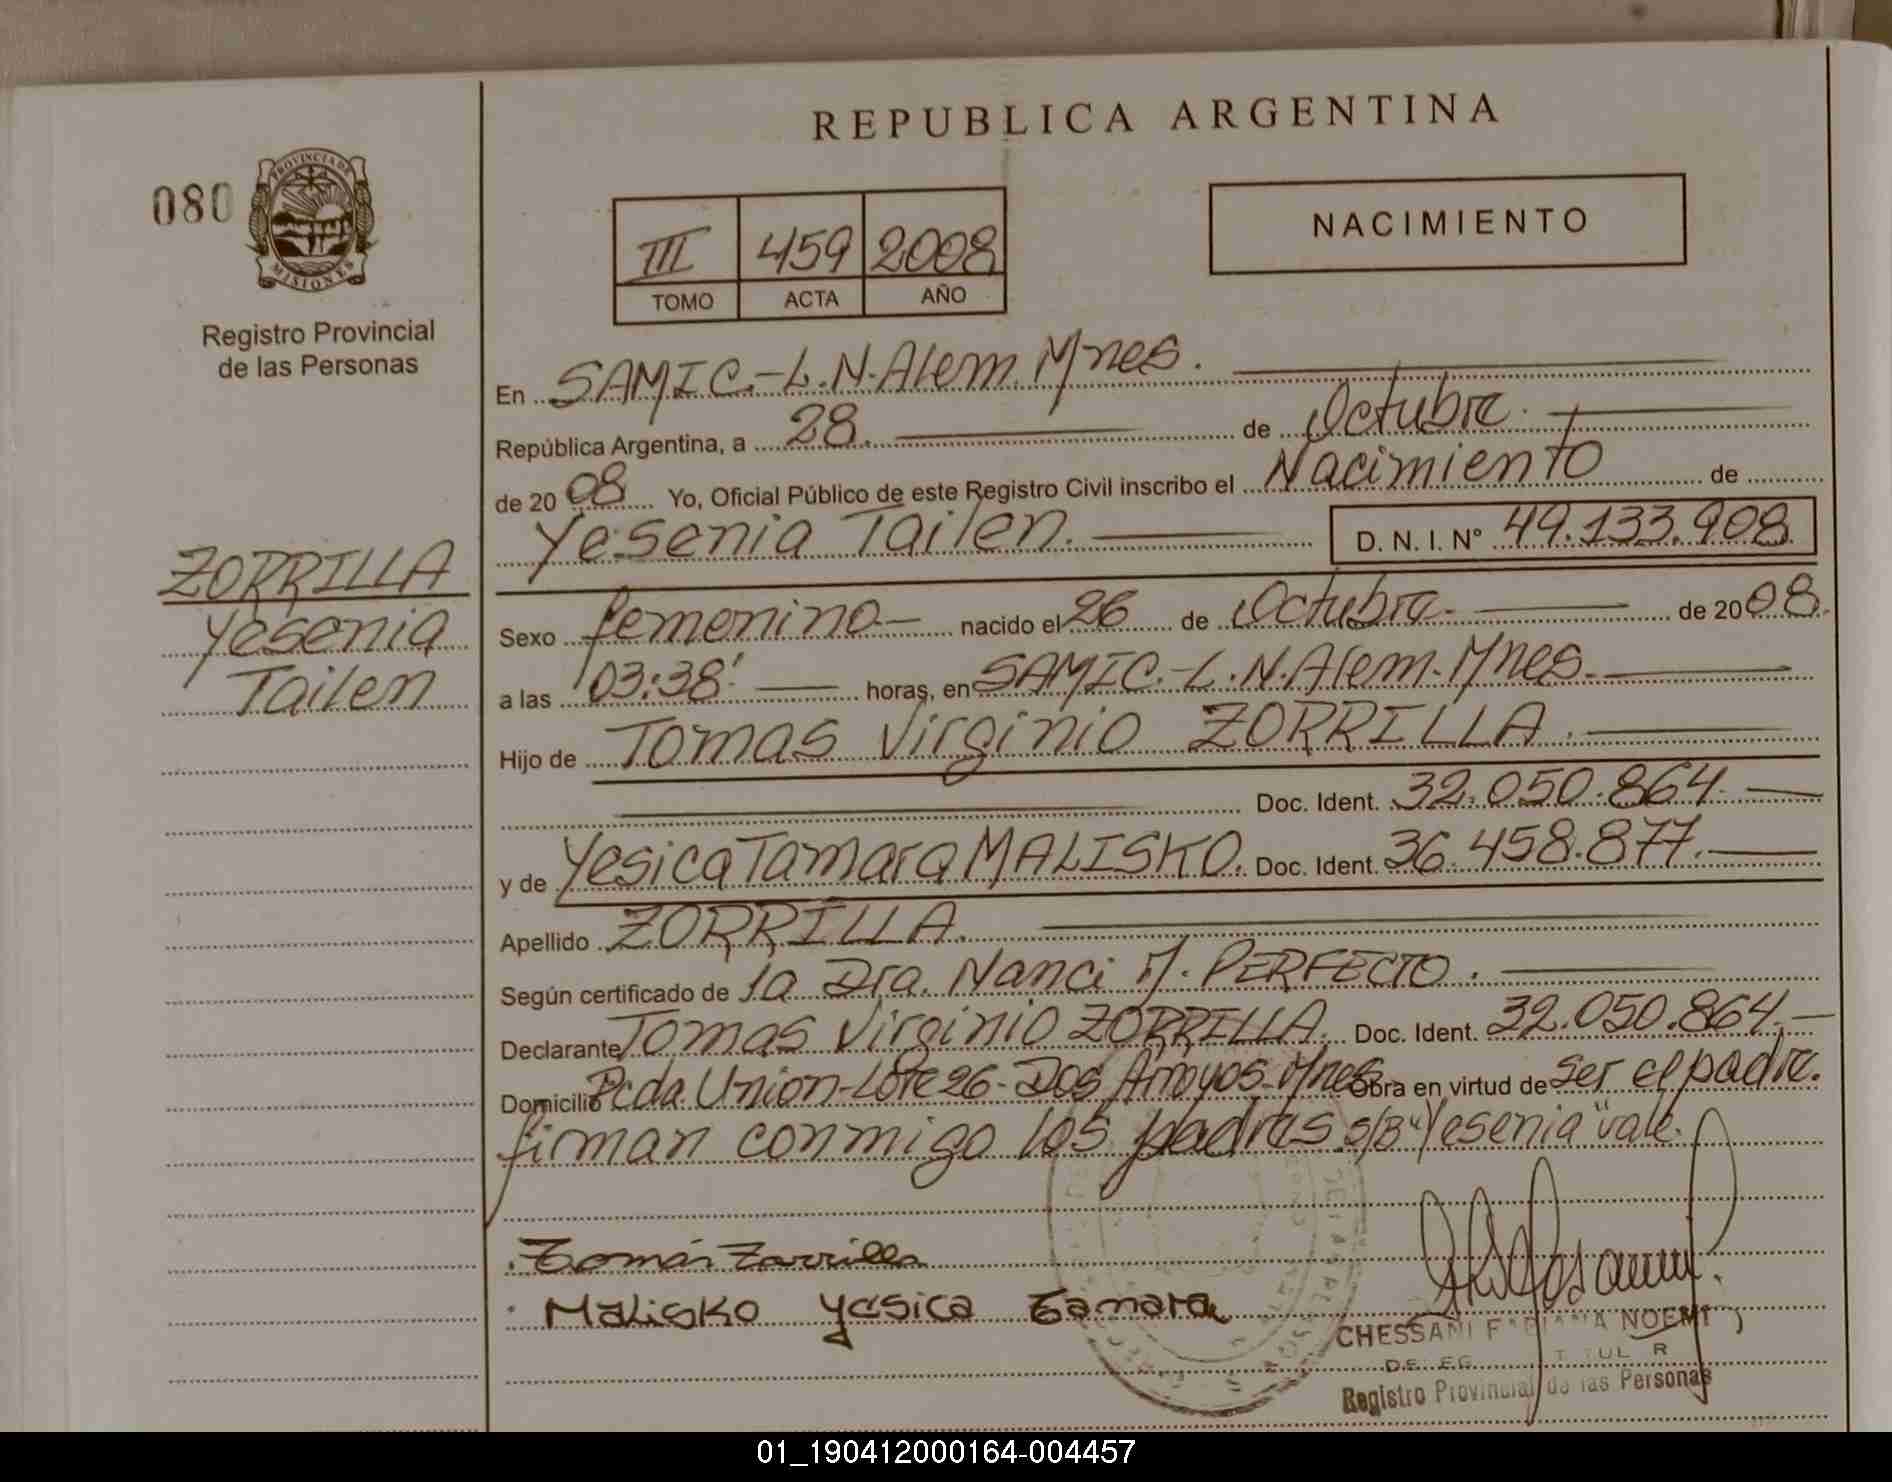 REPUBLICA ARGENTINA
080
PROVINCIA DE
MISIONES
Registro Provincial
de las Personas
III 459 2008
TOMO ACTA AÑO
NACIMIENTO
En SAMIC.-L.N.Alem.Mnes.
República Argentina, a 28. de Octubre.
de 2008 Yo, Oficial Público de este Registro Civil inscribo el Nacimiento de
Yesenia Tailen. D. N. I. N° 49.133.908
ZORRILLA
Yesenia
Tailen
Sexo femenino nacido el 26 de Octubre de 2008.
a las 03:38' horas, en SAMIC.-L.N.Alem.Mnes.
Hijo de Tomas Virginio ZORRILLA.
Doc. Ident. 32.050.864.
y de Yesica Tamara MALISKO. Doc. Ident. 36.458.877.
Apellido ZORRILLA.
Según certificado de la Dra. Nanci M. PERFECTO.
Declarante Tomas Virginio ZORRILLA. Doc. Ident. 32.050.864.
Domicilio Pcda Union-Lote 26-Dos Arroyos.Mnes Obra en virtud de ser el padre.
firman conmigo los padres. s/B "Yesenia" vale.
Tomás Zorrilla
Malisko Yesica Tamara
CHESSANI FABIANA NOEMI
Registro Provincial de las Personas
01_190412000164-004457